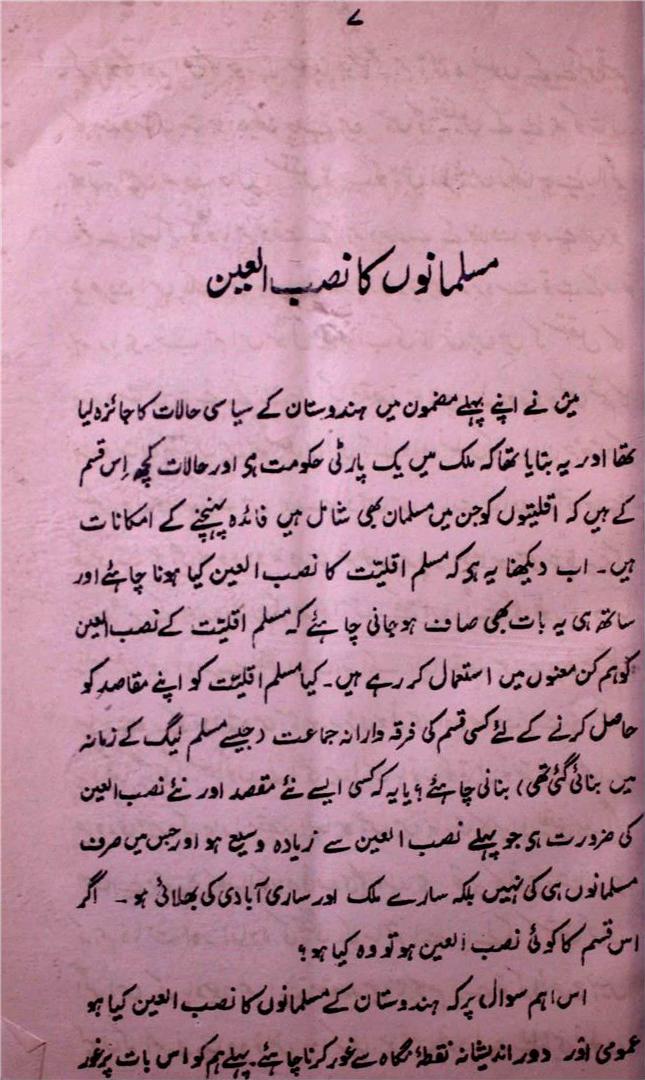 ۷
مسلمانوں کا نصب العین
میں نے اپنے پہلے مضمون میں ہندوستان کے سیاسی حالات کا جائزہ لیا
تھا اور یہ بتایا تھا کہ ملک میں یک پارٹی حکومت ہی اور حالات کچھ اِس قسم
کے ہیں کہ اقلیتوں کو جن میں مسلمان بھی شامل ہیں فائدہ پہنچنے کے امکانات
ہیں۔ اب دیکھنا یہ ہی کہ مسلم اقلیّت کا نصب العین کیا ہونا چاہئے اور
ساتھ ہی یہ بات بھی صاف ہو جانی چاہئے کہ مسلم اقلیّت کے نصب العین
کو ہم کن معنوں میں استعمال کر رہے ہیں۔ کیا مسلم اقلیّت کو اپنے مقاصد کو
حاصل کرنے کے لئے کسی قسم کی فرقہ دارانہ جماعت (جیسے مسلم لیگ کے زمانہ
میں بنائی گئی تھی) بنانی چاہئے؟ یا یہ کہ کسی ایسے نئے مقصد اور نئے نصب العین
کی ضرورت ہی جو پہلے نصب العین سے زیادہ وسیع ہو اور جس میں صرف
مسلمانوں ہی کی نہیں بلکہ سارے ملک اور ساری آبادی کی بھلائی ہو۔ اگر
اس قسم کا کوئی نصب العین ہو تو وہ کیا ہو؟
اس اہم سوال پر کہ ہندوستان کے مسلمانوں کا نصب العین کیا ہو
عمومی اور دور اندیشانہ نقطۂ نگاہ سے غور کرنا چاہئے پہلے ہم کو اس بات پر غور